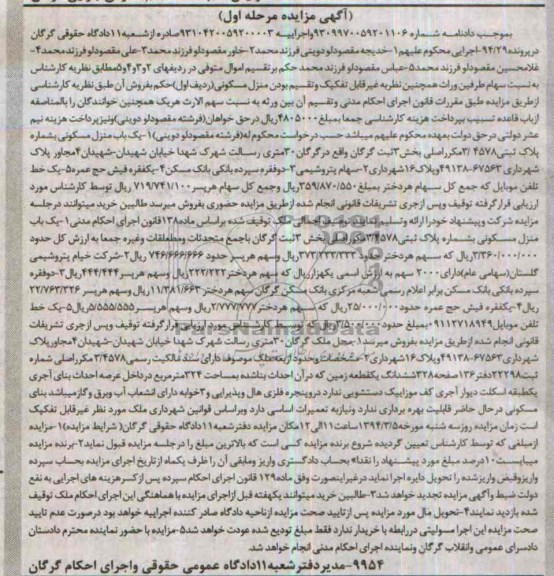 (آگهی مزایده مرحله اول)
بموجب دادنامه شماره ۹۳۰۹۹۷۰۰۵۹۲۰۱۱۰۶ واجراییه ۹۳۱۰۴۲۰۰۵۹۲۰۰۰۰۳ صادره ازشعبه ۱۱ دادگاه حقوقی گرگان
درپرونده ۹۴/۲۹-اجرایی محکوم علیهم ۱-خدیجه مقصودلو دوینی فرزند محمد ۲-خاور مقصودلو فرزند محمد ۳-علی مقصودلو فرزند محمد ۴-
غلامحسین مقصودلو فرزند محمد ۵-عباس مقصودلو فرزند محمد حکم بر تقسیم اموال متوفی در ردیفهای ۲و۳و۴و۵ مطابق نظریه کارشناس
به نسبت سهام طرفین وراث همچنین نظریه غیر قابل تفکیک وتقسیم بودن منزل مسکونی (ردیف اول) حکم بفروش آن طبق نظریه کارشناسی
ازطریق مزایده طبق مقررات قانون اجرای احکام مدنی و تقسیم آن بین ورثه به نسبت سهم الارث هریک همچنین خواندگان را بالمناصفه
ازباب قاعده تسبیب بپرداخت هزینه کارشناسی جمعا بمبلغ ۴۸۰۵۰۰۰ ریال در حق خواهان (فرشته مقصودلو دوینی) ونیزپرداخت هزینه نیم
عشر دولتی درحق دولت بعهده محکوم علیهم میباشد حسب درخواست محکوم له (فرشته مقصودلو دوینی) ۱-یک باب منزل مسکونی بشماره
پلاک ثبتی ۳/۴۵۷۸ مکرراصلی بخش ۳ ثبت گرگان واقع درگرگان ۳۰ متری رسالت شهرک شهدا خیابان شهیدان-شهیدان ۴ مجاور پلاک
شهرداری ۶۷۵۶۳-۴۹۱۳۸ وپلاک ۱۶ شهرداری ۲-سهام پتروشیمی ۳-دوفقره سپرده بانکی بانک مسکن ۴-یکفقره فیش حج عمره ۵-یک خط
تلفن موبایل که جمع کل سهام هردختر بمبلغ ۳۵۹/۸۷۰/۵۵۰ ریال وجمع کل سهام هرپسر ۷۱۹/۷۴۱/۱۰۰ ریال توسط کارشناس مورد
ارزیابی قرارگرفته توقیف وپس ازجری تشریفات قانونی انجام شده ازطریق مزایده حضوری بفروش میرسد طالبین خرید میتوانند درجلسه
مزایده شرکت وپیشنهاد خودرا ارائه وتسلیم نمایند مشخصات اجمالی ملک توقیف شده براساس ماده ۱۳۸ قانون اجرای احکام مدنی ۱-یک باب
منزل مسکونی بشماره پلاک ثبتی ۳/۴۵۷۸ مکرراصلی بخش ۳ ثبت گرگان باجمع متحدثات ومطعلقات وغیره جمعا به ارزش کل حدود
۳/۳۶۰/۰۰۰/۰۰۰ ریال که سهم هردختر حدود ۳۷۳/۳۳۳/۳۳۳ ریال وسهم هرپسر حدود ۷۴۶/۶۶۶/۶۶۶ ریال ۲-شرکت خیام پتروشیمی
گلستان (سهامی عام) دارای ۲۰۰۰ سهم به ارزش اسمی یکهزارریال که سهم هردختر ۲۲۲/۲۲۲ ریال وسهم هرپسر ۴۴۴/۴۴۴ ریال ۳-دوفقره
سپرده بانکی بانک مسکن برابر اعلام رسمی شعبه مرکزی بانک مسکن گرگان سهم هردختر ۱۱/۳۸۱/۶۶۳ ریال وسهم هرپسر ۲۲/۷۶۳/۳۲۶
ریال ۴-یکفقره فیش حج عمره حدود ۲۵/۰۰۰/۰۰۰ ریال که سهم هردختر ۲/۷۷۷/۷۷۷ ریال وسهم هرپسر ۵/۵۵۵/۵۵۵ ریال ۵-یک خط
تلفن موبایل ۹۱۱۲۷۱۸۹۴۹ بمبلغ حدود ریال توسط کارشناس مورد ارزیابی قرارگرفته توقیف وپس ازجری تشریفات
قانونی انجام شده ازطریق مزایده بفروش میرسد ۱-محل ملک گرگان ۳۰ متری رسالت شهرک شهدا خیابان شهیدان-شهیدان ۴ مجاور پلاک
شهرداری ۶۷۵۶۳-۴۹۱۳۸ وپلاک ۱۶ شهرداری ۲-مشخصات وحدود اربعه ملک موصوف دارای سند مالکیت رسمی ۳/۴۵۷۸ مکرراصلی شماره
ثبت ۲۲۲۹۸ دفتر ۱۳۶ صفحه ۳۲۸ ششدانگ یکقطعه زمین که در آن احداث بناشده بمساحت ۳۲۴ مترمربع در داخل عرصه احداث بنای آجری
یکطبقه اسکلت دیوار آجری کف موزاییک دستشویی ندارد دروپنجره فلزی هال وپذیرایی و ۳ خوابه دارای انشعاب آب وبرق وگازمیباشد بنای
مسکونی درحال حاضر قابلیت بهره برداری ندارد ونیازبه تعمیرات اساسی دارد وبراساس قوانین شهرداری ملک مورد نظر غیرقابل تفکیک
است زمان مزایده روزسه شنبه مورخه ۱۳۹۴/۳/۵ ساعت ۱۱ الی ۱۲ مکان مزایده دفترشعبه ۱۱ دادگاه حقوقی گرگان (شرایط مزایده) ۱-مزایده
ازمبلغی که توسط کارشناس تعیین گردیده شروع برنده مزایده کسی است که بالاترین مبلغ را درجلسه مزایده قبول نماید ۲-برنده مزایده
میبایست ۱۰ درصد مبلغ مورد پیشنهاد را نقدا بحساب دادگستری واریز ومابقی آن را ظرف یکماه ازتاریخ اجرای مزایده بحساب سپرده
واریزوفیش واریزشده را تحویل دایره اجرا نماید درغیراینصورت وفق ماده ۱۲۹ قانون اجرای احکام سپرده پس ازکسرهزینه های اجرایی به نفع
دولت ضبط وآگهی مزایده تجدید خواهد شد ۳-طالبین خرید میتوانند یکهفته قبل ازاجرای مزایده با هماهنگی این اجرای احکام ملک توقیف
شده بازدید نمایند ۴-تحویل مال مورد مزایده پس ازتایید صحت مزایده ازناحیه دادگاه صادر کننده اجراییه خواهد بود درصورت عدم تایید
صحت مزایده این اجرا مسولیتی دررابطه با خریدار ندارد فقط مبلغ تودیع شده عودت خواهد شد ۵-مزایده با حضور نماینده محترم دادستان
دادسرای عمومی وانقلاب گرگان ونماینده اجرای احکام مدنی انجام خواهد شد.
۹۹۵۴-مدیردفترشعبه ۱۱ دادگاه عمومی حقوقی واجرای احکام گرگان